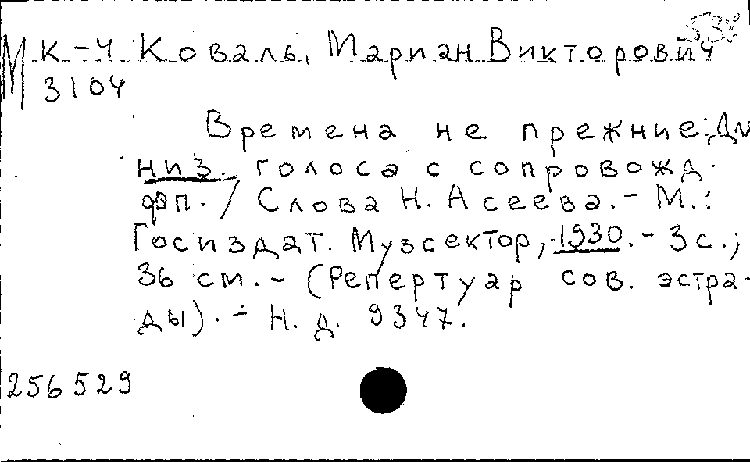 М К-4 Коваль, Мариан Викторович
3104
Времена не прежние: Для
низ. голоса с сопровожд.
фп. / Слова Н. Асеева. - М.:
Госиздат. Музсектор, 1930. - 3 с.;
36 см. - (Репертуар сов. эстра-
ды). - Н. д. 9347.
256529